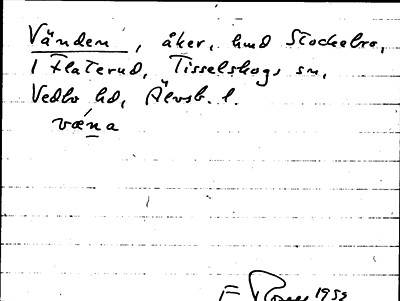 Vänden, åker, hmd Stockebro,
1 Flaterud, Tisselskogs sn,
Vedbo hd, Älvsb. l.
væna
F 1955